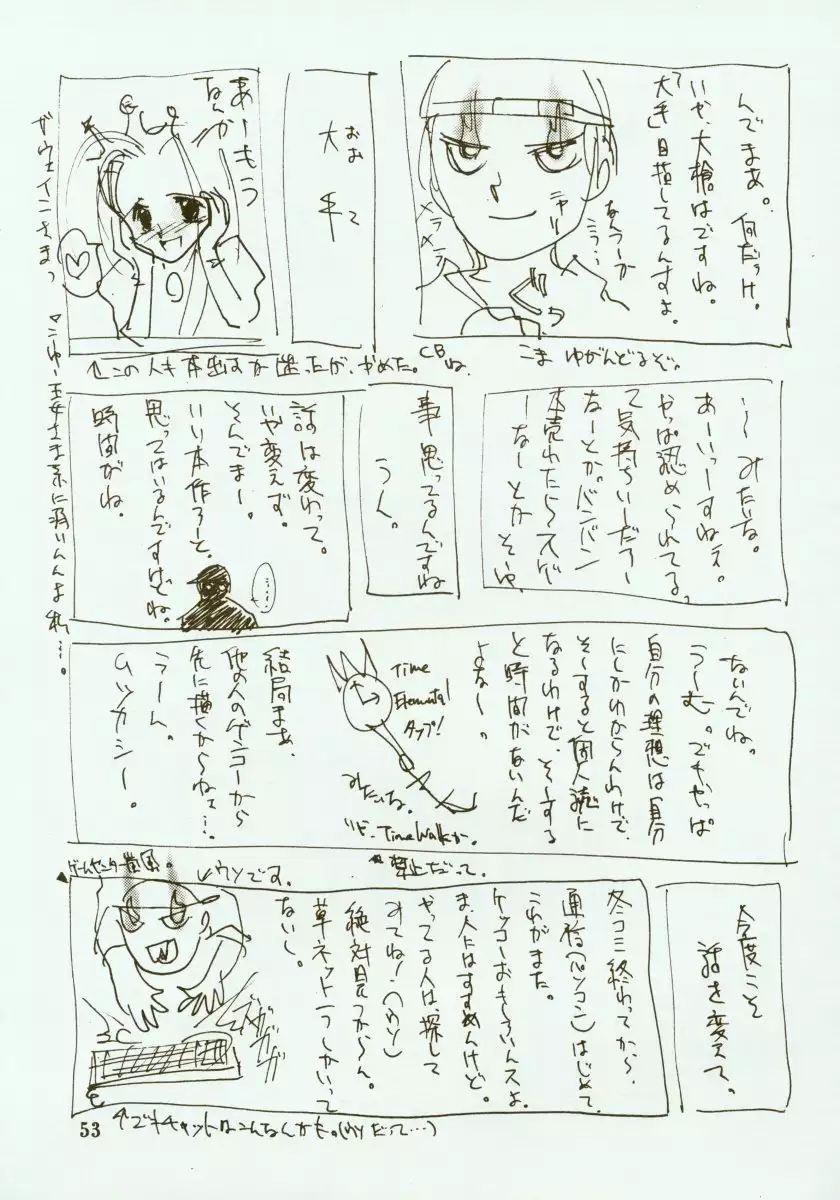 んでまあ。何だっけ。
いや、大槍はですね。
「大手」目指してるんすよ。
なんつーか
こう…
ニヤリ
メラ
メラ
CBね。
こま ゆがんどるぞ。
おお て
大 手
あーもう
なんかー
ガウェインさまっ
↑この人も本出すか迷ったが、やめた。
王女さま系に弱いんよ私…。
…みたいな。
あーいっすねえ。
やっぱ認められてる。
て気持ちいーだろー
なーとか。バンバン
本売れたらスゲ
ーなーとかそーゆ
事思ってるんですね
うん。
話は変わって。
いや変えず。
そんでまー。
いい本作ろーと、
思ってはいるんですけどね。
時間がね。
ないんでね。
うーむ。でもやっぱ
自分の理想は自分
にしかわからんわけで、
そーすると個人誌に
なるわけで、そーする
と時間がないんだ
よなー。
Time
Elemental
タップ!
みたいな。
Time Walkか。
禁止だって。
結局まあ、
他の人のゲンコーから
先に描くからねぇ…。
うーん。
ムツカシー。
今度こそ
話を変えて。
冬コミ終わってから、
通信(パソコン)はじめて、
これがまた。
ケッコーおもしろいんスよ。
ま、人にはすすめんけど。
やってる人は探して
みてね!(ウソ)
絶対見つからん。
草ネット一つしかいって
ないし。
ゲームセンター嵐風。
↙ウソです。
ガガガガ
↑でもチャットはこんなんかも。(ウソだって…)
53